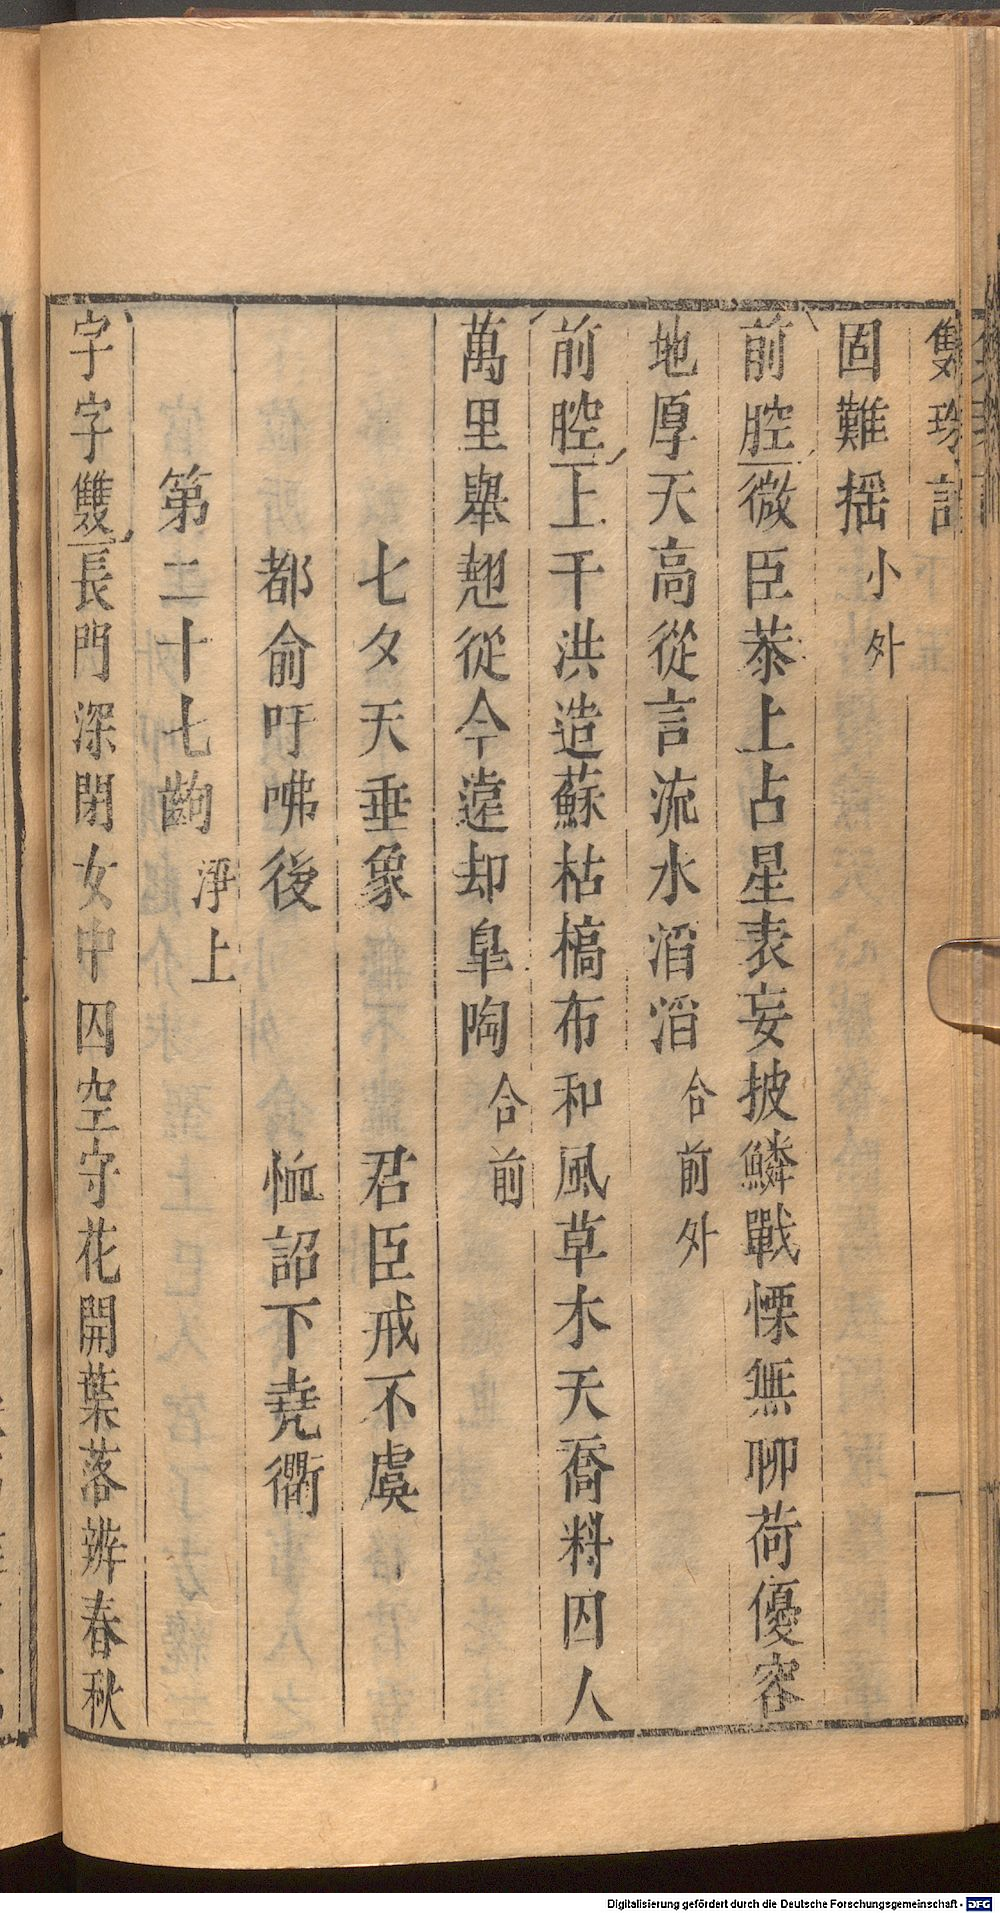 雙珠記
固難搖小外
前腔微臣忝上占星表妄披鱗戰慄無聊荷優容
地厚天高從言流水滔滔合前外
前腔上干洪造蘇枯槁布和風草木天喬料囚人
萬里舉趐從今遠却臯陶合前
七夕天垂象　君臣戒不虞
都俞吁咈後　恤詔下堯衢
第二十七齣淨上
字字雙長門深閉女中囚空守花開葉落辨春秋
Digitalisierung gefördert durch die Deutsche Forschungsgemeinschaft - DFG